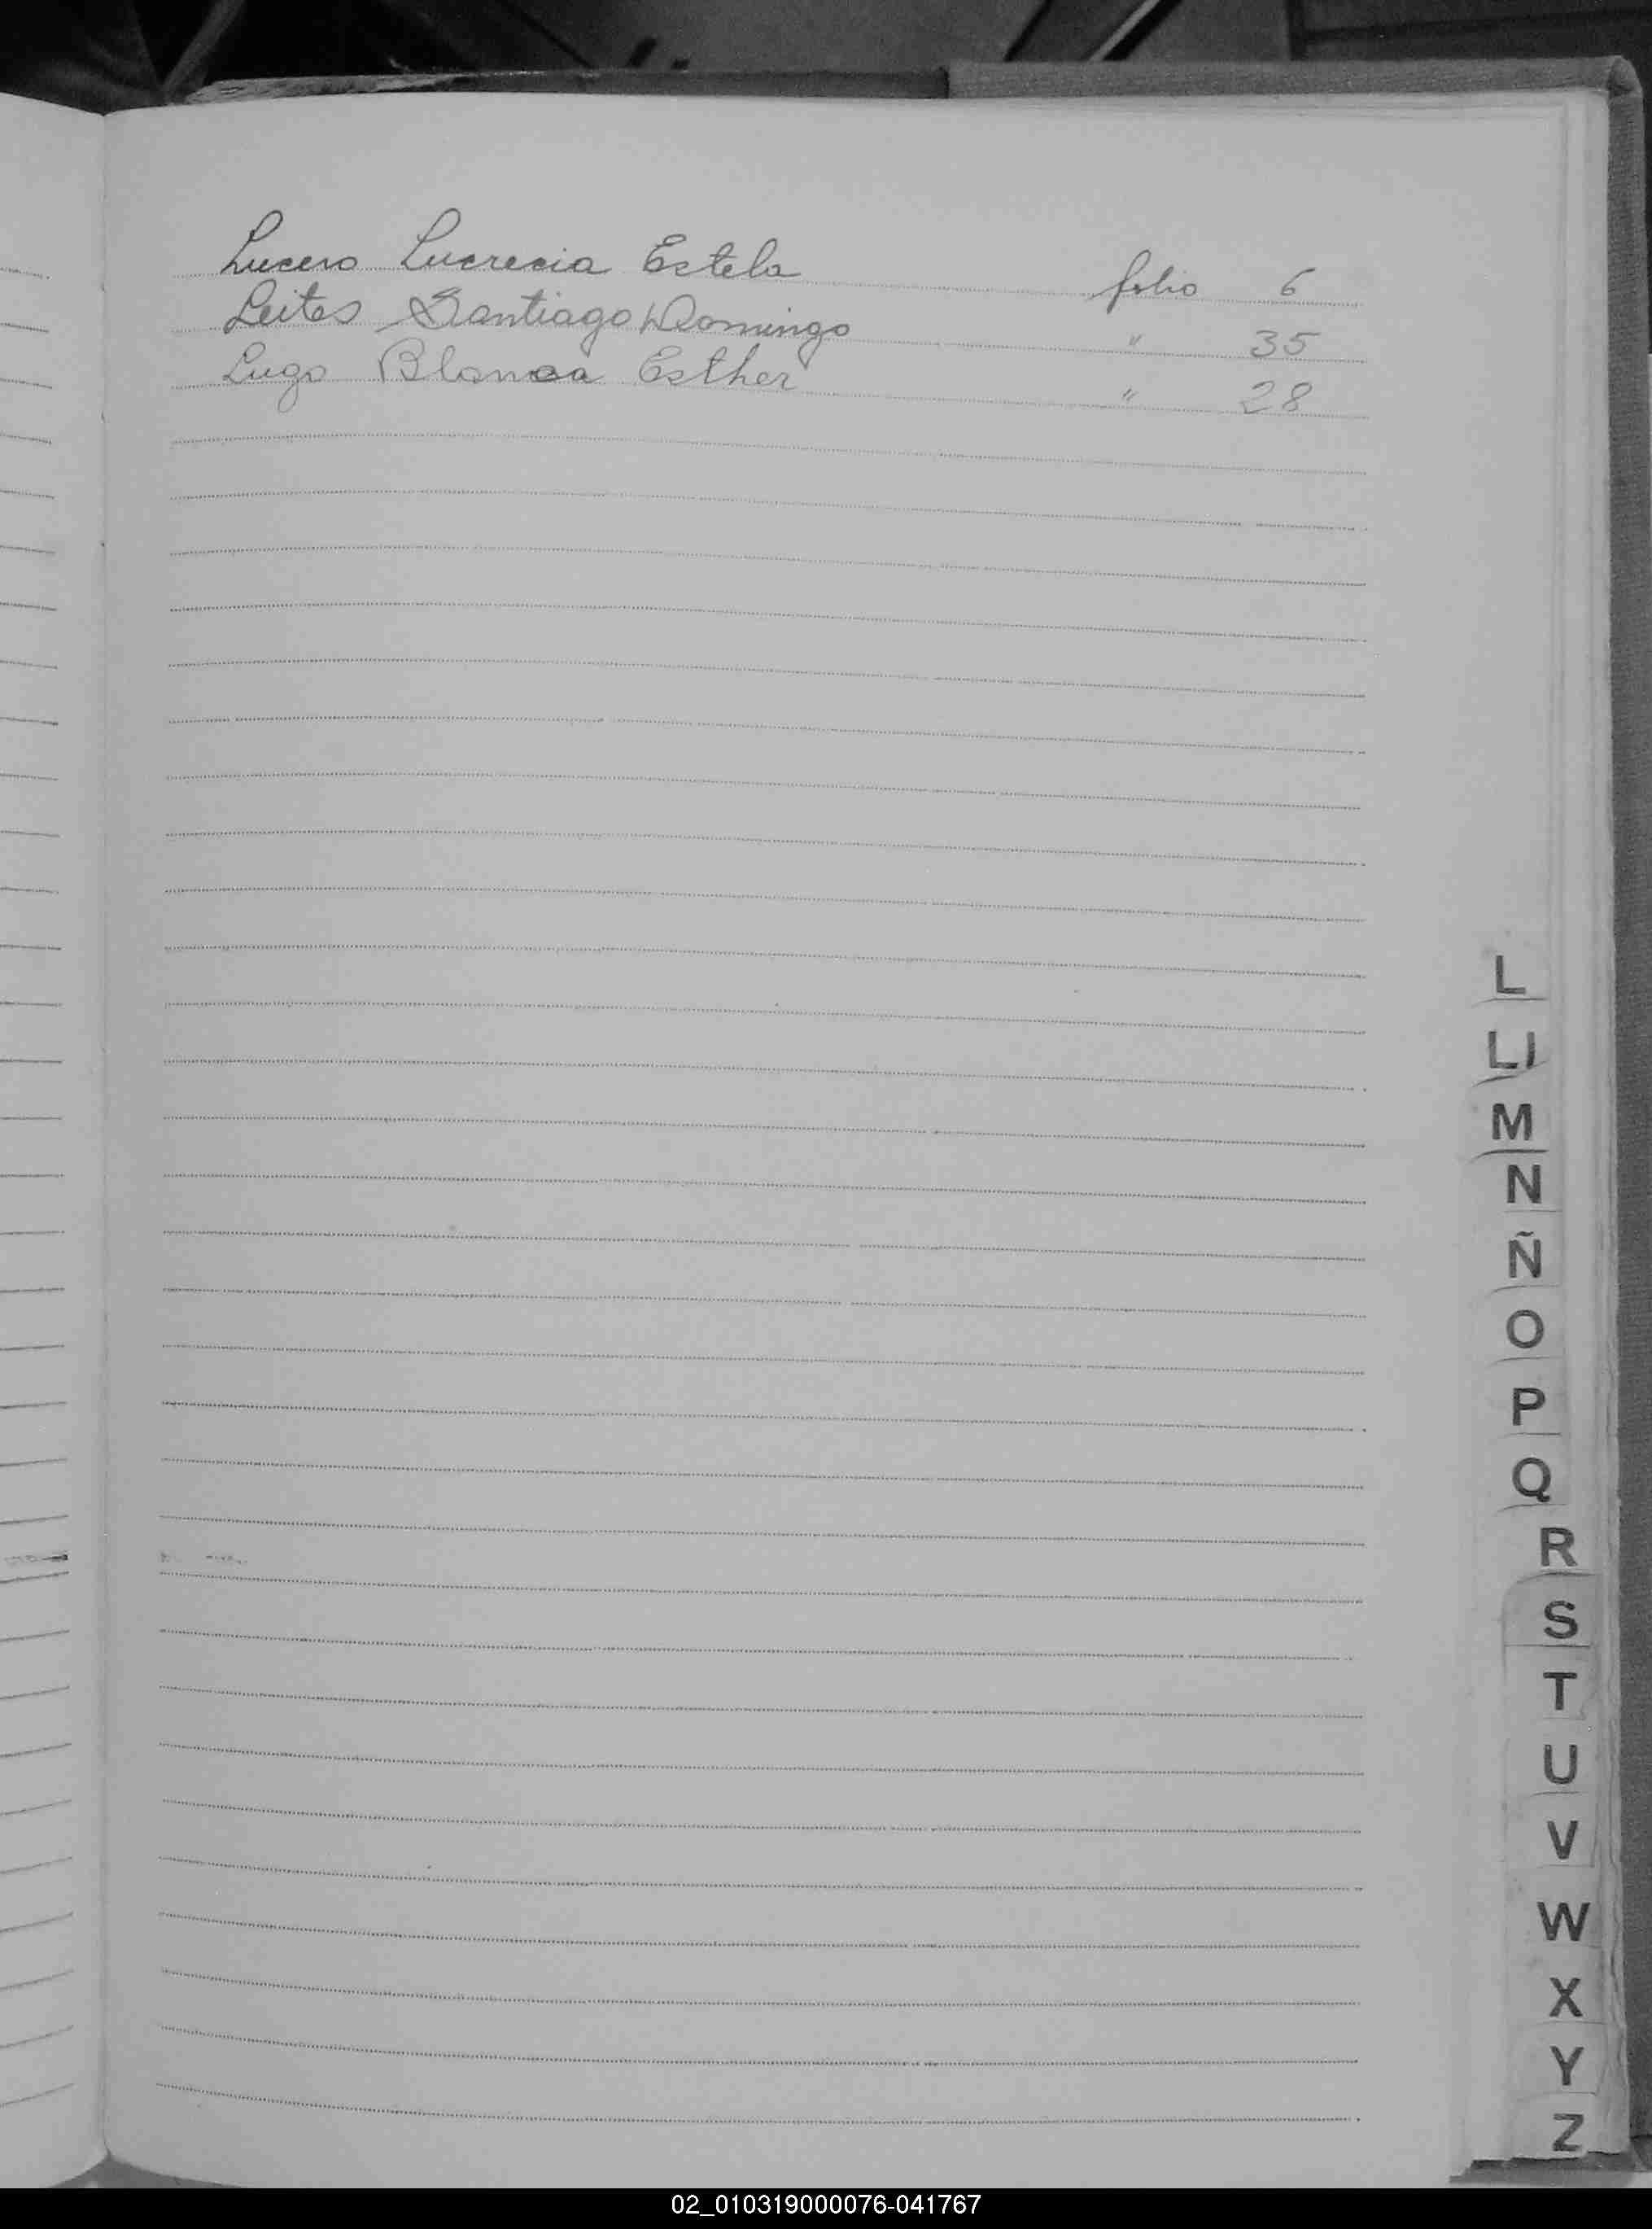 Lucero Lucrecia Estela folio 6
Leites Santiago Domingo " 35
Lugo Blanca Esther " 28
L
Ll
M
N
Ñ
O
P
Q
R
S
T
U
V
W
X
Y
Z
02_010319000076-041767